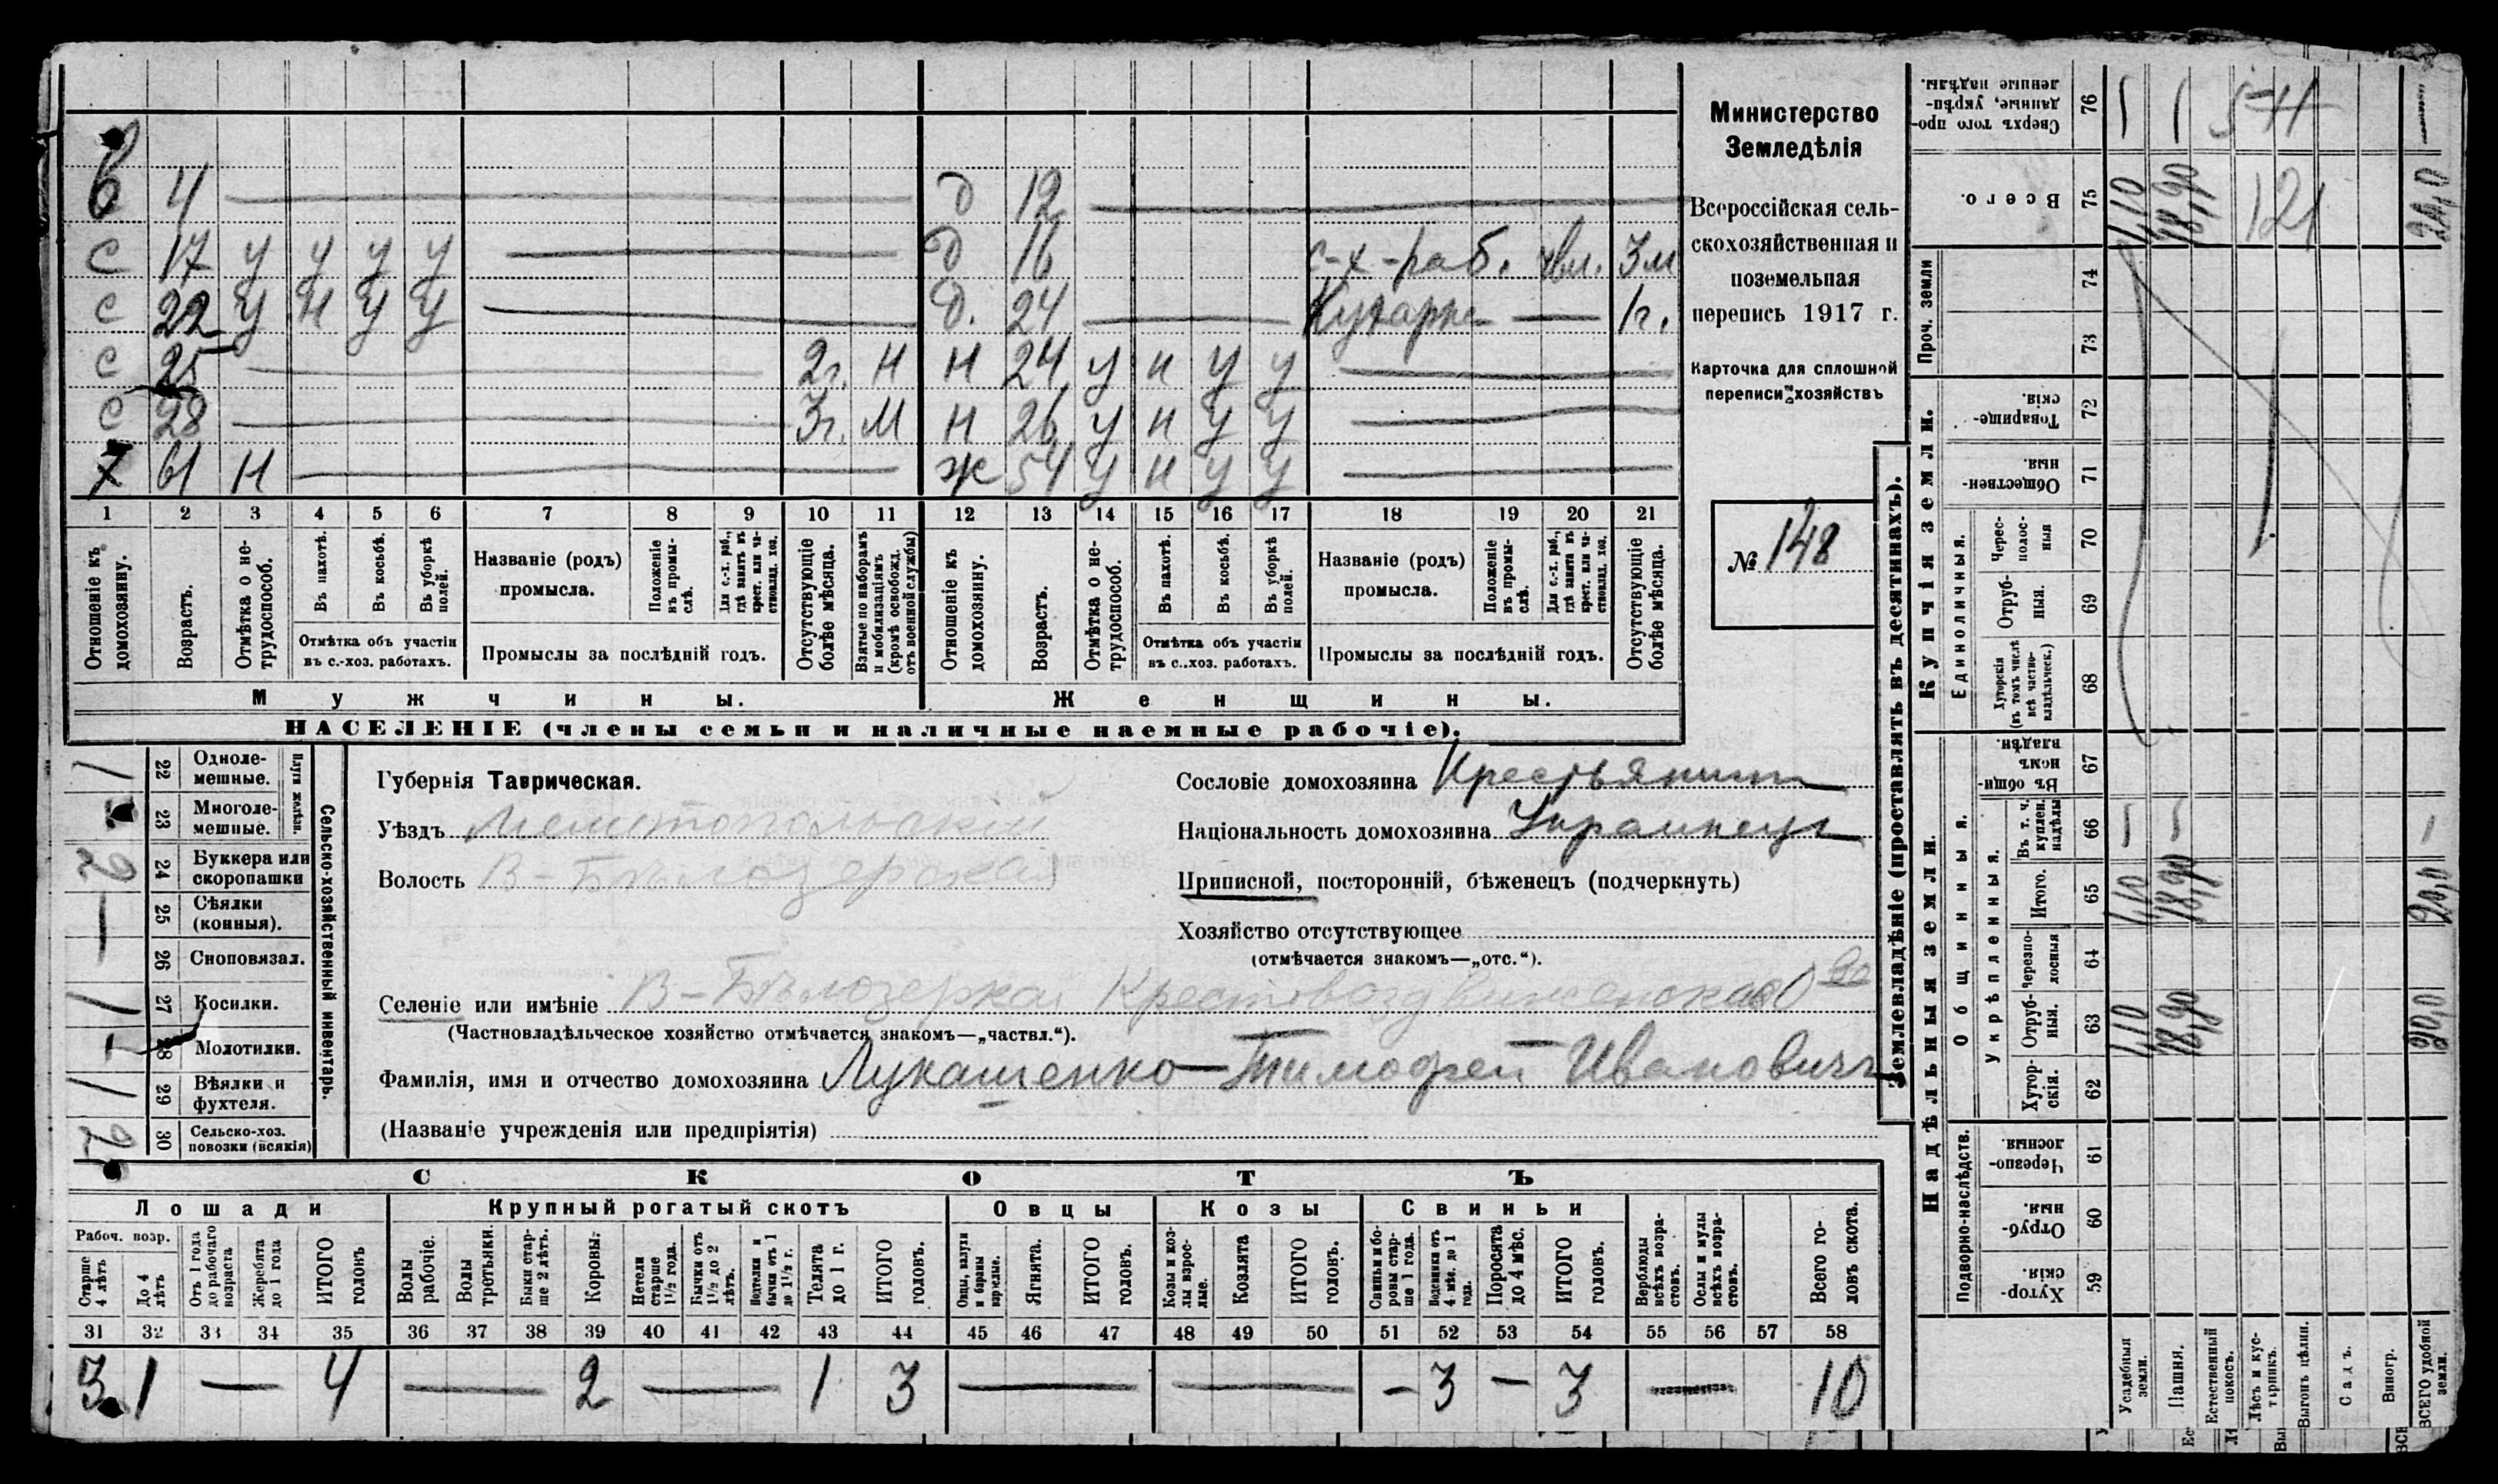 в 4 — д 12 —
с 17 у у у у — д 16 с-х-раб. 3м
с 22 у н у у — д. 24 — Кухарка — 1г.
с 25 — 2г. н н 24 у н у у —
с 28 — 3г. м н 26 у н у у —
х 61 н — ж 54 у н у у —
1 2 3 4 5 6 7 8 9 10 11 12 13 14 15 16 17 18 19 20 21
Отношеніе къ домохозяину.
Возрастъ.
Отмѣтка о не-трудоспособ.
Въ пахотѣ.
Въ косьбѣ.
Въ уборкѣ полей.
Отмѣтка объ участіи
въ с.-хоз. работахъ.
Названіе (родъ)
промысла.
Положеніе въ промы-слѣ.
Для с.-х. раб., гдѣ занятъ въ крест. или ча-стновлад. хоз.
Промыслы за послѣдній годъ.
Отсутствующіе болѣе мѣсяца.
Взятые по наборамъ и мобилизаціямъ (кромѣ освобожд. отъ военной службы)
Отношеніе къ домохозяину.
Возрастъ.
Отмѣтка о не-трудоспособ.
Въ пахотѣ.
Въ косьбѣ.
Въ уборкѣ полей.
Отмѣтка объ участіи
въ с..хоз. работахъ.
Названіе (родъ)
промысла.
Положеніе въ промы-слѣ.
Для с.-х. раб., гдѣ занята въ крест. или ча-стновлад. хоз.
Промыслы за послѣдній годъ.
Отсутствующіе болѣе мѣсяца.
Мужчины. Женщины.
НАСЕЛЕНІЕ (члены семьи и наличные наемные рабочіе).
Министерство
Земледѣлія
Всероссійская сель-
скохозяйственная и
поземельная
перепись 1917 г.
Карточка для сплошной
переписи хозяйствъ
№ 148
Сельско-хозяйственный инвентарь.
Плуги желѣзн.
1 22 Одноле-мешные.
23 Многоле-мешные.
2 24 Буккера или скоропашки
— 25 Сѣялки (конныя).
26 Сноповязал.
1 27 Косилки.
28 Молотилки.
1 29 Вѣялки и фухтеля.
2 30 Сельско-хоз. повозки (всякія)
Губернія Таврическая.
Уѣздъ Мелитопольскій
Волость В-Бѣлозерская
Сословіе домохозяина Крестьянинъ
Національность домохозяина Украинецъ
Приписной, посторонній, бѣженецъ (подчеркнуть)
Хозяйство отсутствующее
(отмѣчается знакомъ—„отс.“).
Селеніе или имѣніе В-Бѣлозерка Крестовоздвиженское
(Частновладѣльческое хозяйство отмѣчается знакомъ—„частвл.“).
Фамилія, имя и отчество домохозяина Лукашенко Тимофей Ивановичъ
(Названіе учрежденія или предпріятія)
СКОТЪ
Лошади Крупный рогатый скотъ Овцы Козы Свиньи
Рабоч. возр.
Старше 4 лѣтъ
До 4 лѣтъ
Отъ 1 года до рабочаго возраста
Жеребята до 1 года
ИТОГО головъ
Волы рабочіе.
Волы третьяки.
Быки стар-ше 2 лѣтъ.
Коровы.
Нетели старше 1½ года.
Бычки отъ 1½ до 2 лѣтъ.
Нетелки и бычки отъ 1 до 1½ г.
Телята до 1 г.
ИТОГО головъ.
Овцы, валухи и бараны взрослые.
Ягнята.
ИТОГО головъ.
Козы и коз-лы взрос-лые.
Козлята
ИТОГО головъ.
Свиньи и бо-ровы стар-ше 1 года.
Подсвинки отъ 4 мѣс. до 1 года.
Поросята до 4 мѣс.
ИТОГО головъ.
Верблюды всѣхъ возра-стовъ.
Ослы и мулы всѣхъ возра-стовъ.
Всего го-ловъ скота.
31 32 33 34 35 36 37 38 39 40 41 42 43 44 45 46 47 48 49 50 51 52 53 54 55 56 57 58
3 1 — 4 — 2 — 1 3 — — — 3 — 3 — 10
Землевладѣніе (проставлять въ десятинахъ).
Купчія земли.
Надѣльныя земли.
Сверхъ того про-данные, укрѣп-ленные надѣлы. 76
Всего. 75 1,10 18,90 121 20,0
Проч. земли 74 73
Товарище-скія. 72
Обществен-ныя. 71
Единоличныя.
Черес-полос-ныя 70
Отруб-ныя. 69
Хуторскія (въ томъ числѣ всѣ частно-владѣльческ.) 68
Общинныя.
Въ общи-номъ владѣн. 67
Укрѣпленныя.
Въ т. ч. куплен. надѣлы 66
Итого. 65 1,10 18,90 20,0
Черезпо-лосныя 64
Отруб-ныя. 63 1,10 18,90 20,0
Хутор-скія. 62
Подворно-наслѣдств.
Черезпо-лосныя 61
Отруб-ныя. 60
Хутор-скія. 59
Усадебныя земли.
Пашня.
Естественный покосъ.
Лѣсъ и кус-тарникъ.
Выгонъ цѣлин.
Садъ.
Виногр.
ВСЕГО удобной земли.